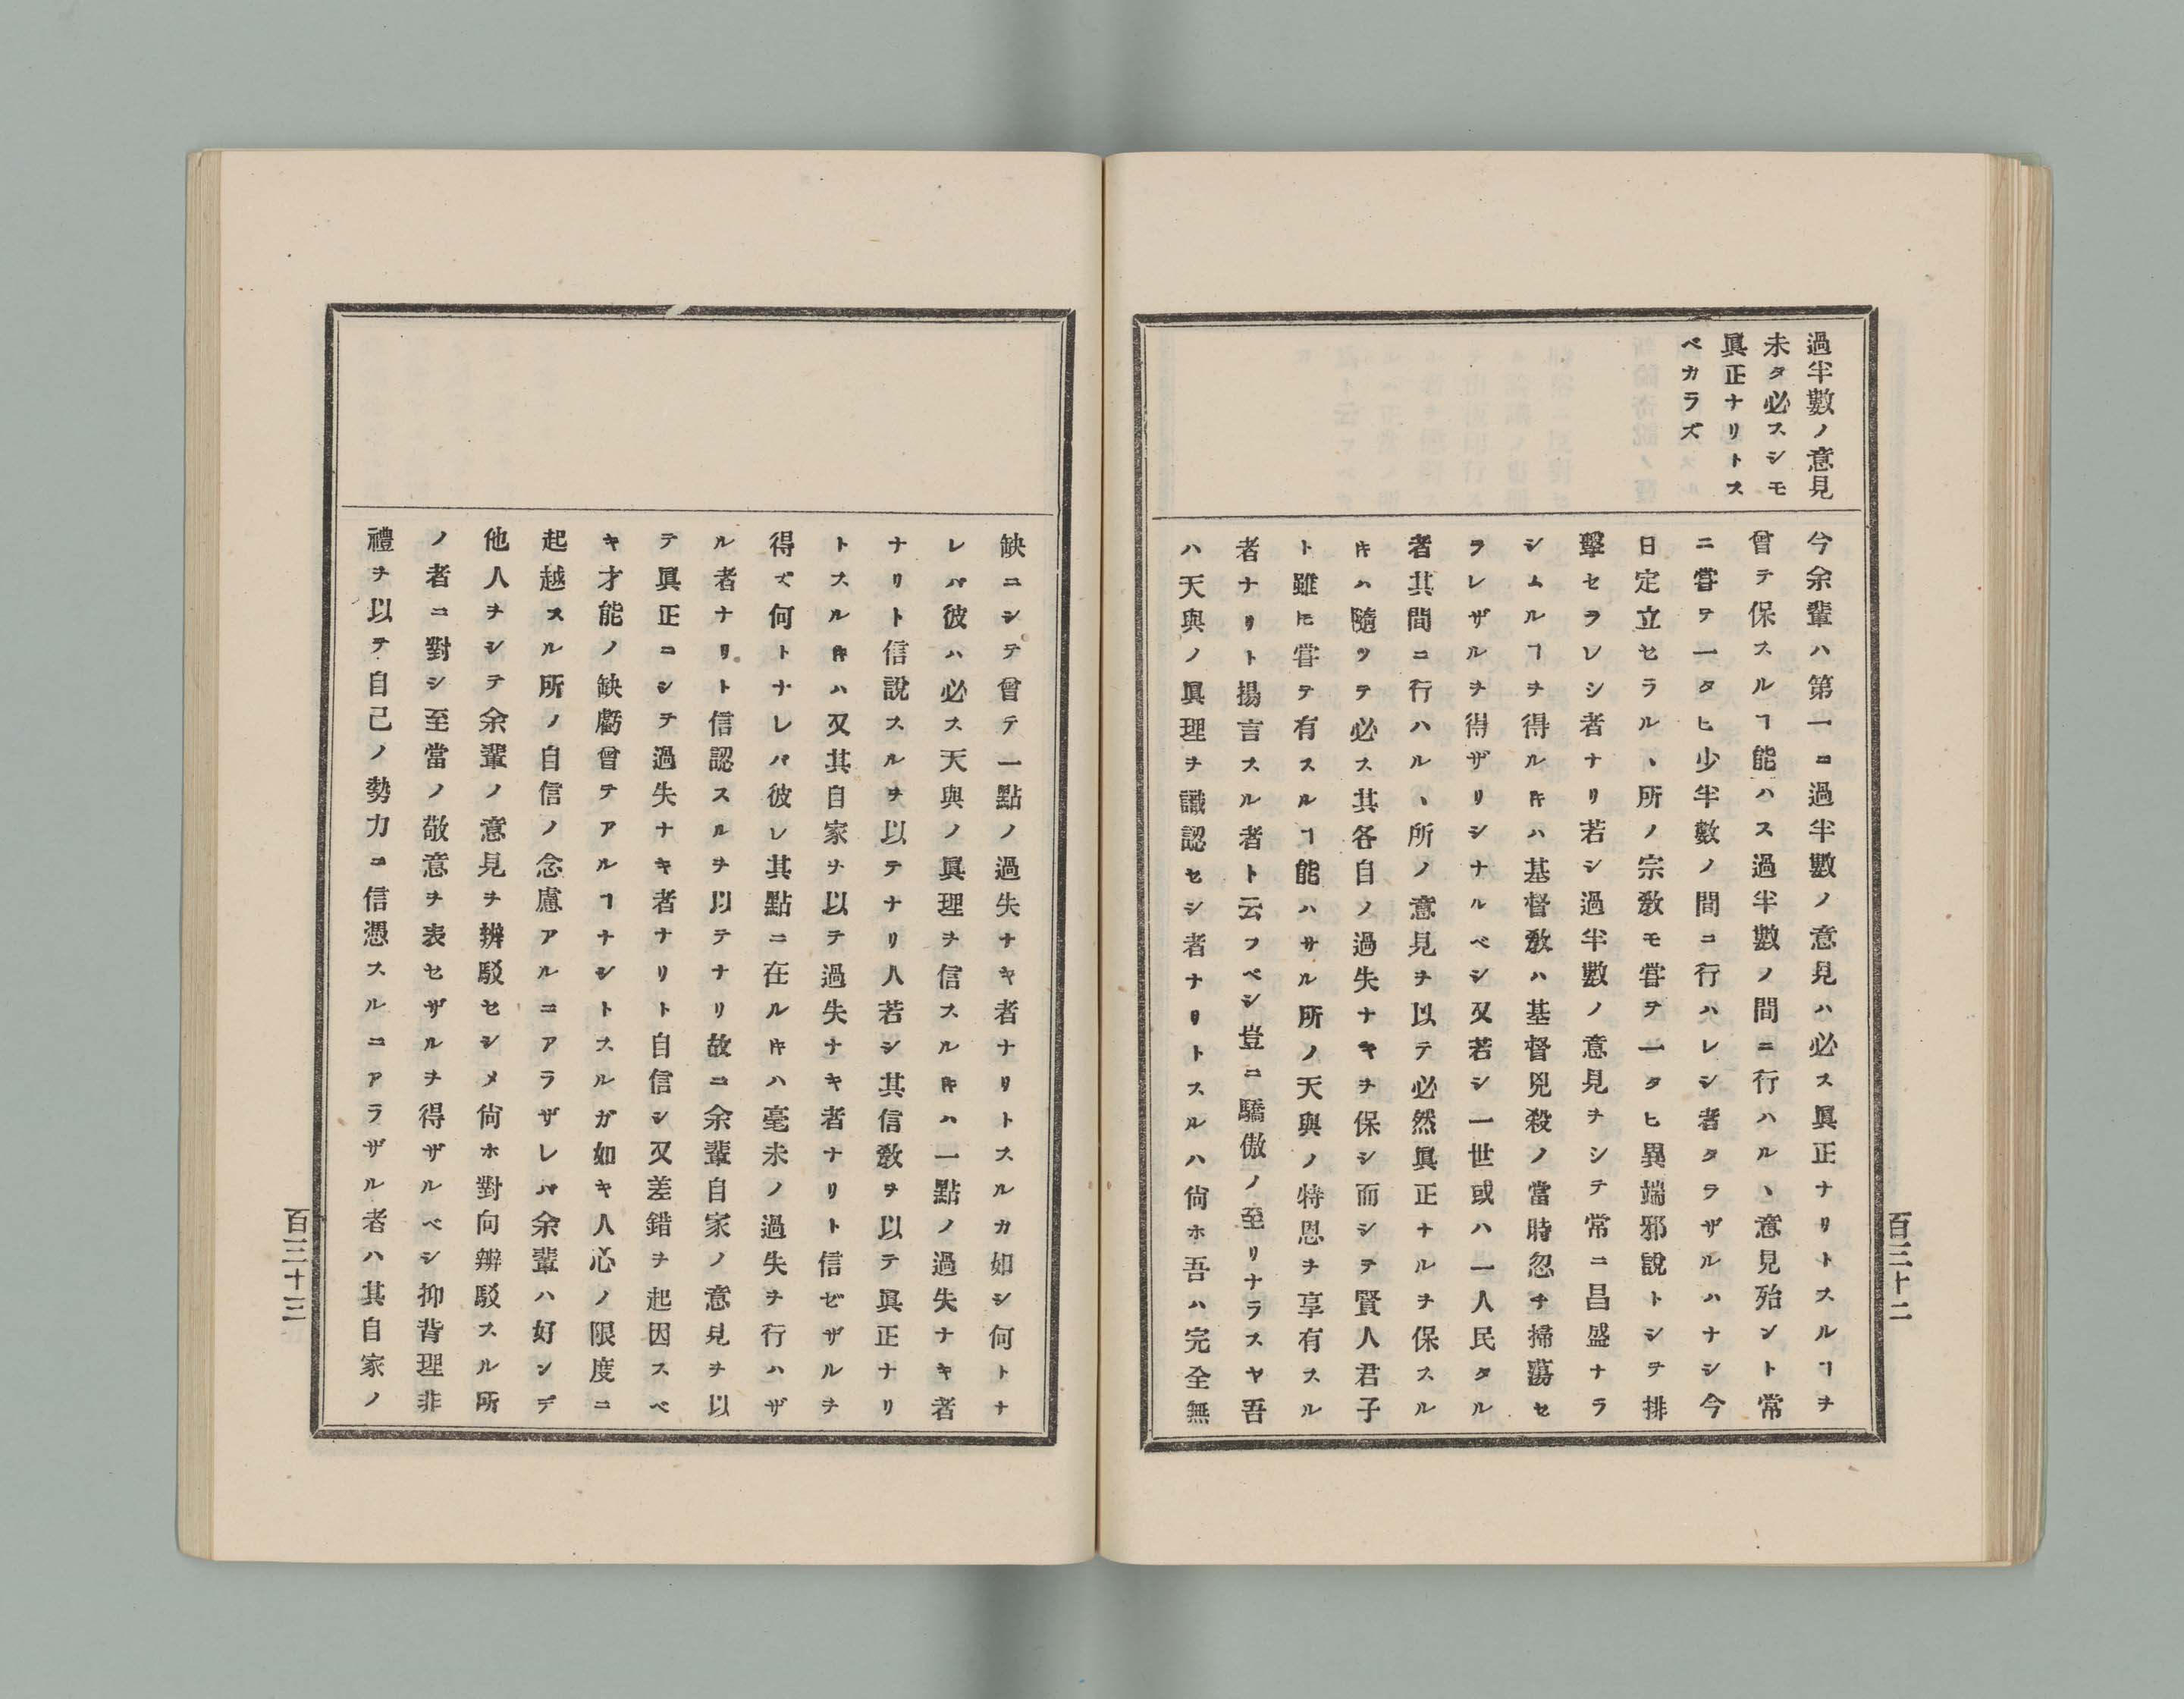 過半數ノ意見
未タ必スシモ
眞正ナリトス
ベカラズ
今余輩ハ第一ニ過半數ノ意見ハ必ス眞正ナリトスルヿヲ
曾テ保スルヿ能ハス過半數ノ間ニ行ハルヽ意見殆ント常
ニ甞テ一タヒ少半數ノ間ニ行ハレシ者タラザルハナシ今
日定立セラルヽ所ノ宗敎モ甞テ一タヒ異端邪說トシテ排
擊セラレシ者ナリ若シ過半數ノ意見ヲシテ常ニ昌盛ナラ
シムルヿヲ得ルキハ基督敎ハ基督兇殺ノ當時忽チ掃蕩セ
ラレザルヲ得ザリシナルベシ又若シ一世或ハ一人民タル
者其間ニ行ハルヽ所ノ意見ヲ以テ必然眞正ナルヲ保スル
キハ隨ツテ必ス其各自ノ過失ナキヲ保シ而シテ賢人君子
ト雖𪜈甞テ有スルヿ能ハサル所ノ天與ノ特恩ヲ享有スル
者ナリト揚言スル者ト云フベシ豈ニ驕傲ノ至リナラスヤ吾
ハ天與ノ眞理ヲ識認セシ者ナリトスルハ尙ホ吾ハ完全無
百三十二
缺ニシテ曾テ一點ノ過失ナキ者ナリトスルカ如シ何トナ
レバ彼ハ必ス天與ノ眞理ヲ信スルキハ一點ノ過失ナキ者
ナリト信說スルヲ以テナリ人若シ其信敎ヲ以テ眞正ナリ
トスルキハ又其自家ヲ以テ過失ナキ者ナリト信ゼザルヲ
得ズ何トナレバ彼レ其點ニ在ルキハ毫未ノ過失ヲ行ハザ
ル者ナリト信認スルヲ以テナリ故ニ余輩自家ノ意見ヲ以
テ眞正ニシテ過失ナキ者ナリト自信シ又差錯ヲ起因スベ
キ才能ノ缺虧曾テアルヿナシトスルガ如キ人心ノ限度ニ
起越スル所ノ自信ノ念慮アルニアラザレバ余輩ハ好ンデ
他人ヲシテ余輩ノ意見ヲ辨駁セシメ尙ホ對向辨駁スル所
ノ者ニ對シ至當ノ敬意ヲ表セザルヲ得ザルベシ抑背理非
禮ヲ以テ自己ノ勢力ニ信憑スルニアラザル者ハ其自家ノ
百三十三